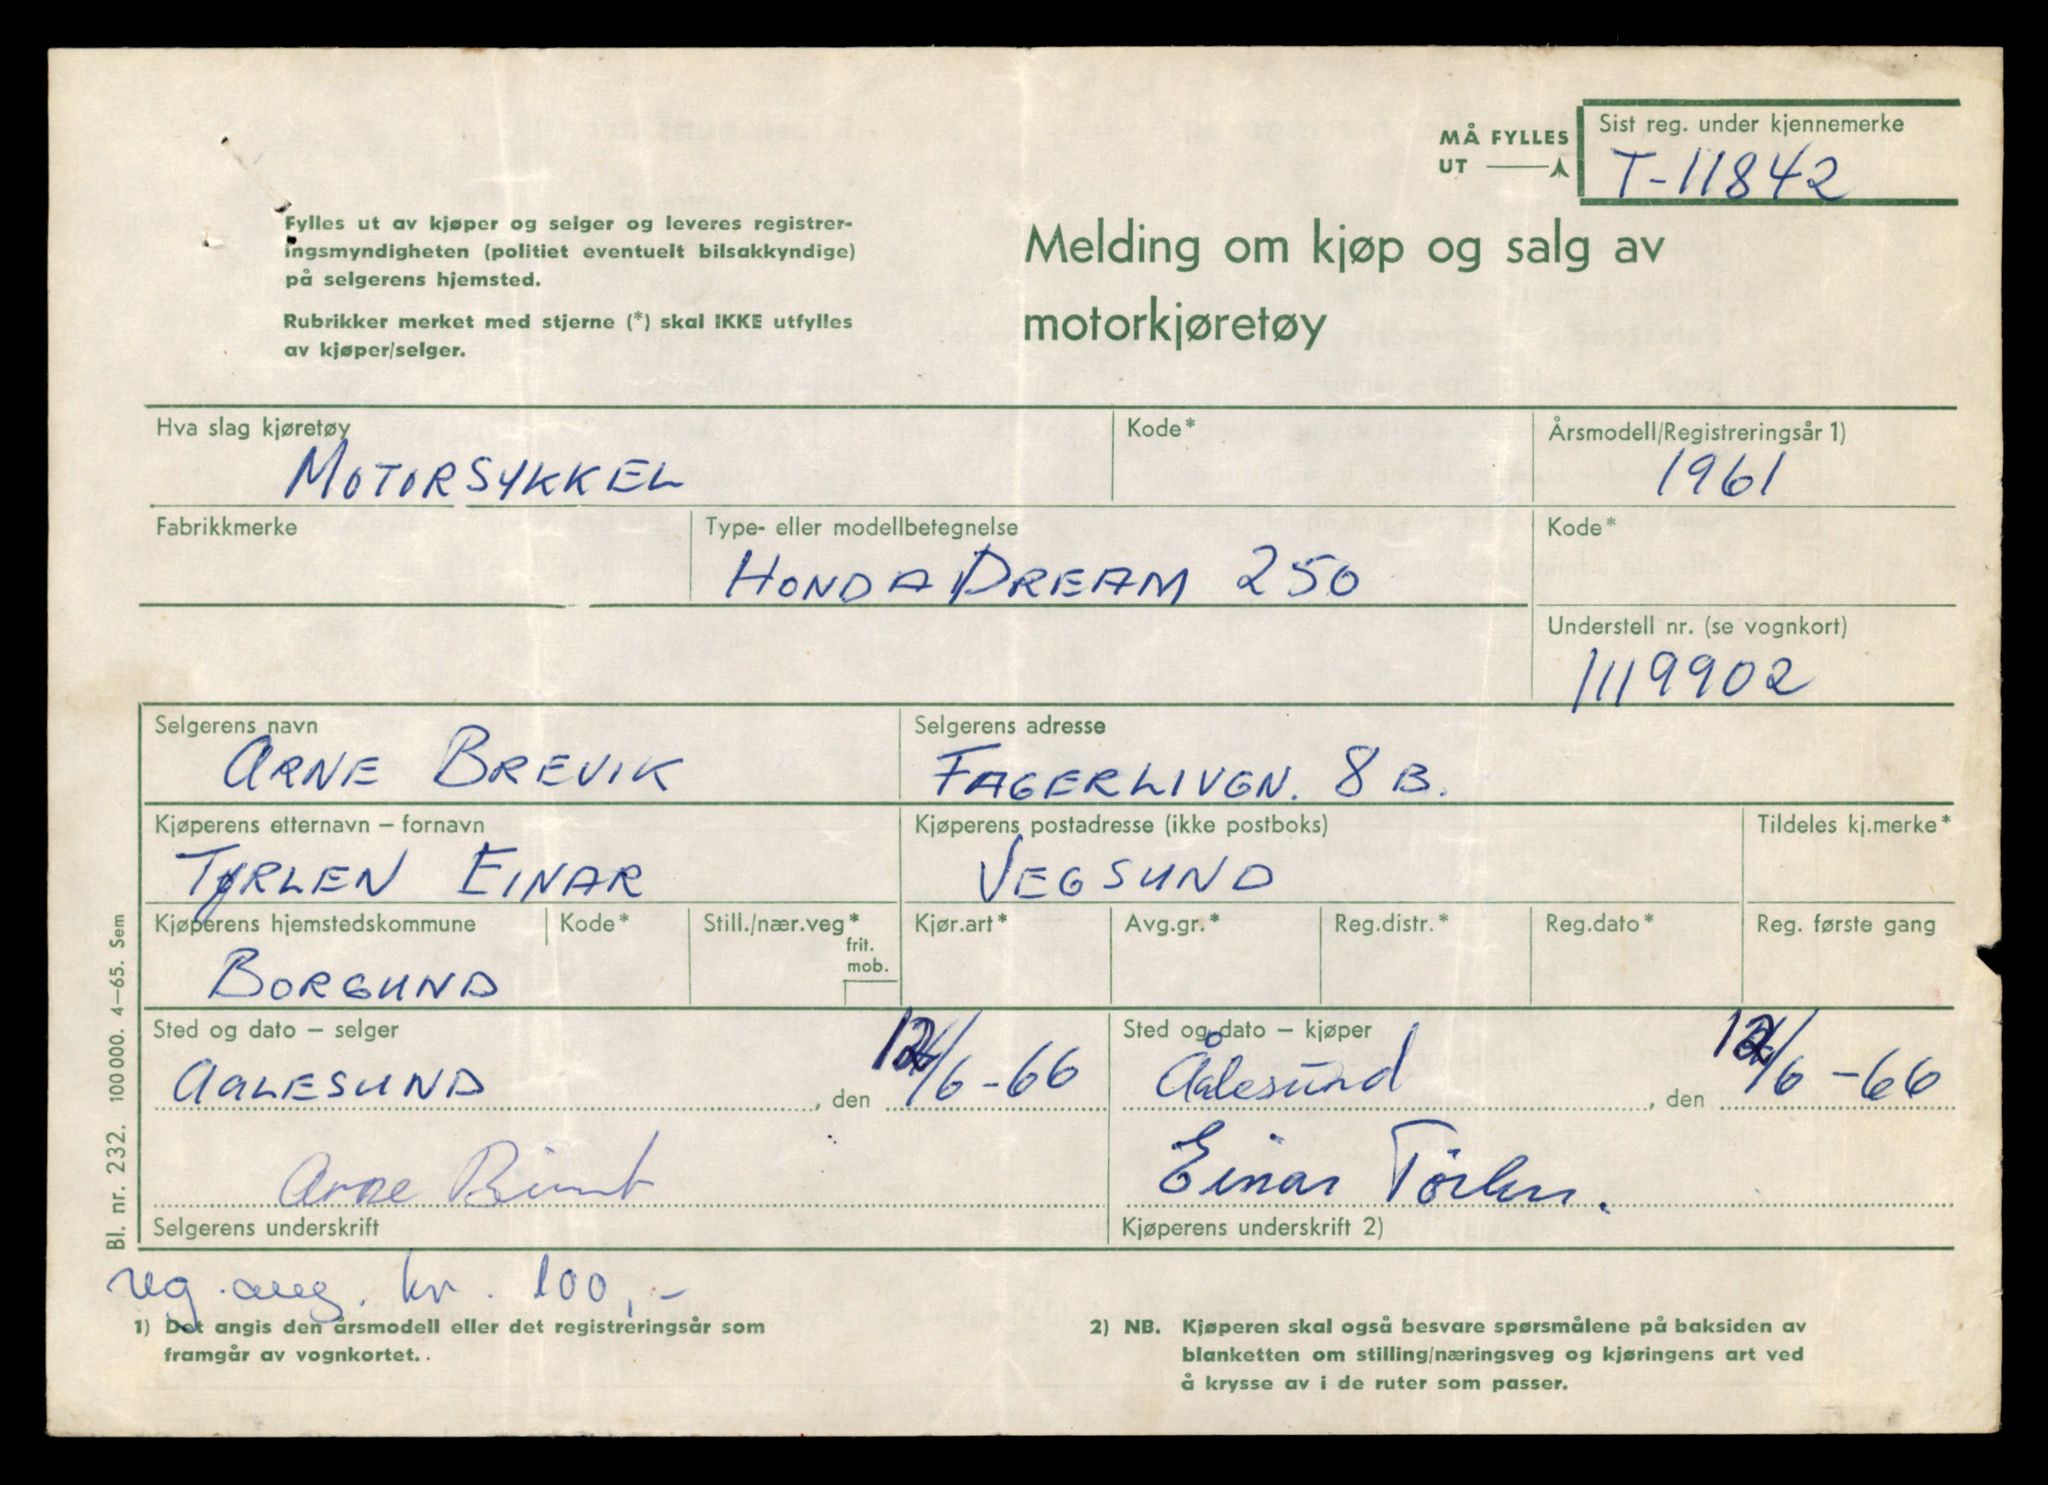 MÅ FYLLES
UT
Sist reg. under kjennemerke
T-11842
Fylles ut av kjøper og selger og leveres registrer-
ingsmyndigheten (politiet eventuelt bilsakkyndige)
på selgerens hjemsted.
Rubrikker merket med stjerne (*) skal IKKE utfylles
av kjøper/selger.
Melding om kjøp og salg av
motorkjøretøy
Hva slag kjøretøy
MOTORSYKKEL
Kode*
Årsmodell/Registreringsår 1)
1961
Fabrikkmerke
Type- eller modellbetegnelse
HONDA DREAM 250
Kode*
Understell nr. (se vognkort)
1119902
Selgerens navn
ARNE BREVIK
Selgerens adresse
FAGERLIVGN. 8 B.
Kjøperens etternavn – fornavn
TØRLEN EINAR
Kjøperens postadresse (ikke postboks)
VEGSUND
Tildeles kj.merke*
Kjøperens hjemstedskommune
BORGUND
Kode*
Still./nær.veg*
frit.
mob.
Kjør.art*
Avg.gr.*
Reg.distr.*
Reg.dato*
Reg. første gang
Sted og dato – selger
AALESUND , den /6-66
Sted og dato – kjøper
Ålesund , den /6-66
Arne
Selgerens underskrift
Einar Törlen.
Kjøperens underskrift 2)
Bl. nr. 232. 100 000. 4–65. Sem
reg. avg. kr. 100,-
1) Det angis den årsmodell eller det registreringsår som
framgår av vognkortet.
2) NB. Kjøperen skal også besvare spørsmålene på baksiden av
blanketten om stilling/næringsveg og kjøringens art ved
å krysse av i de ruter som passer.